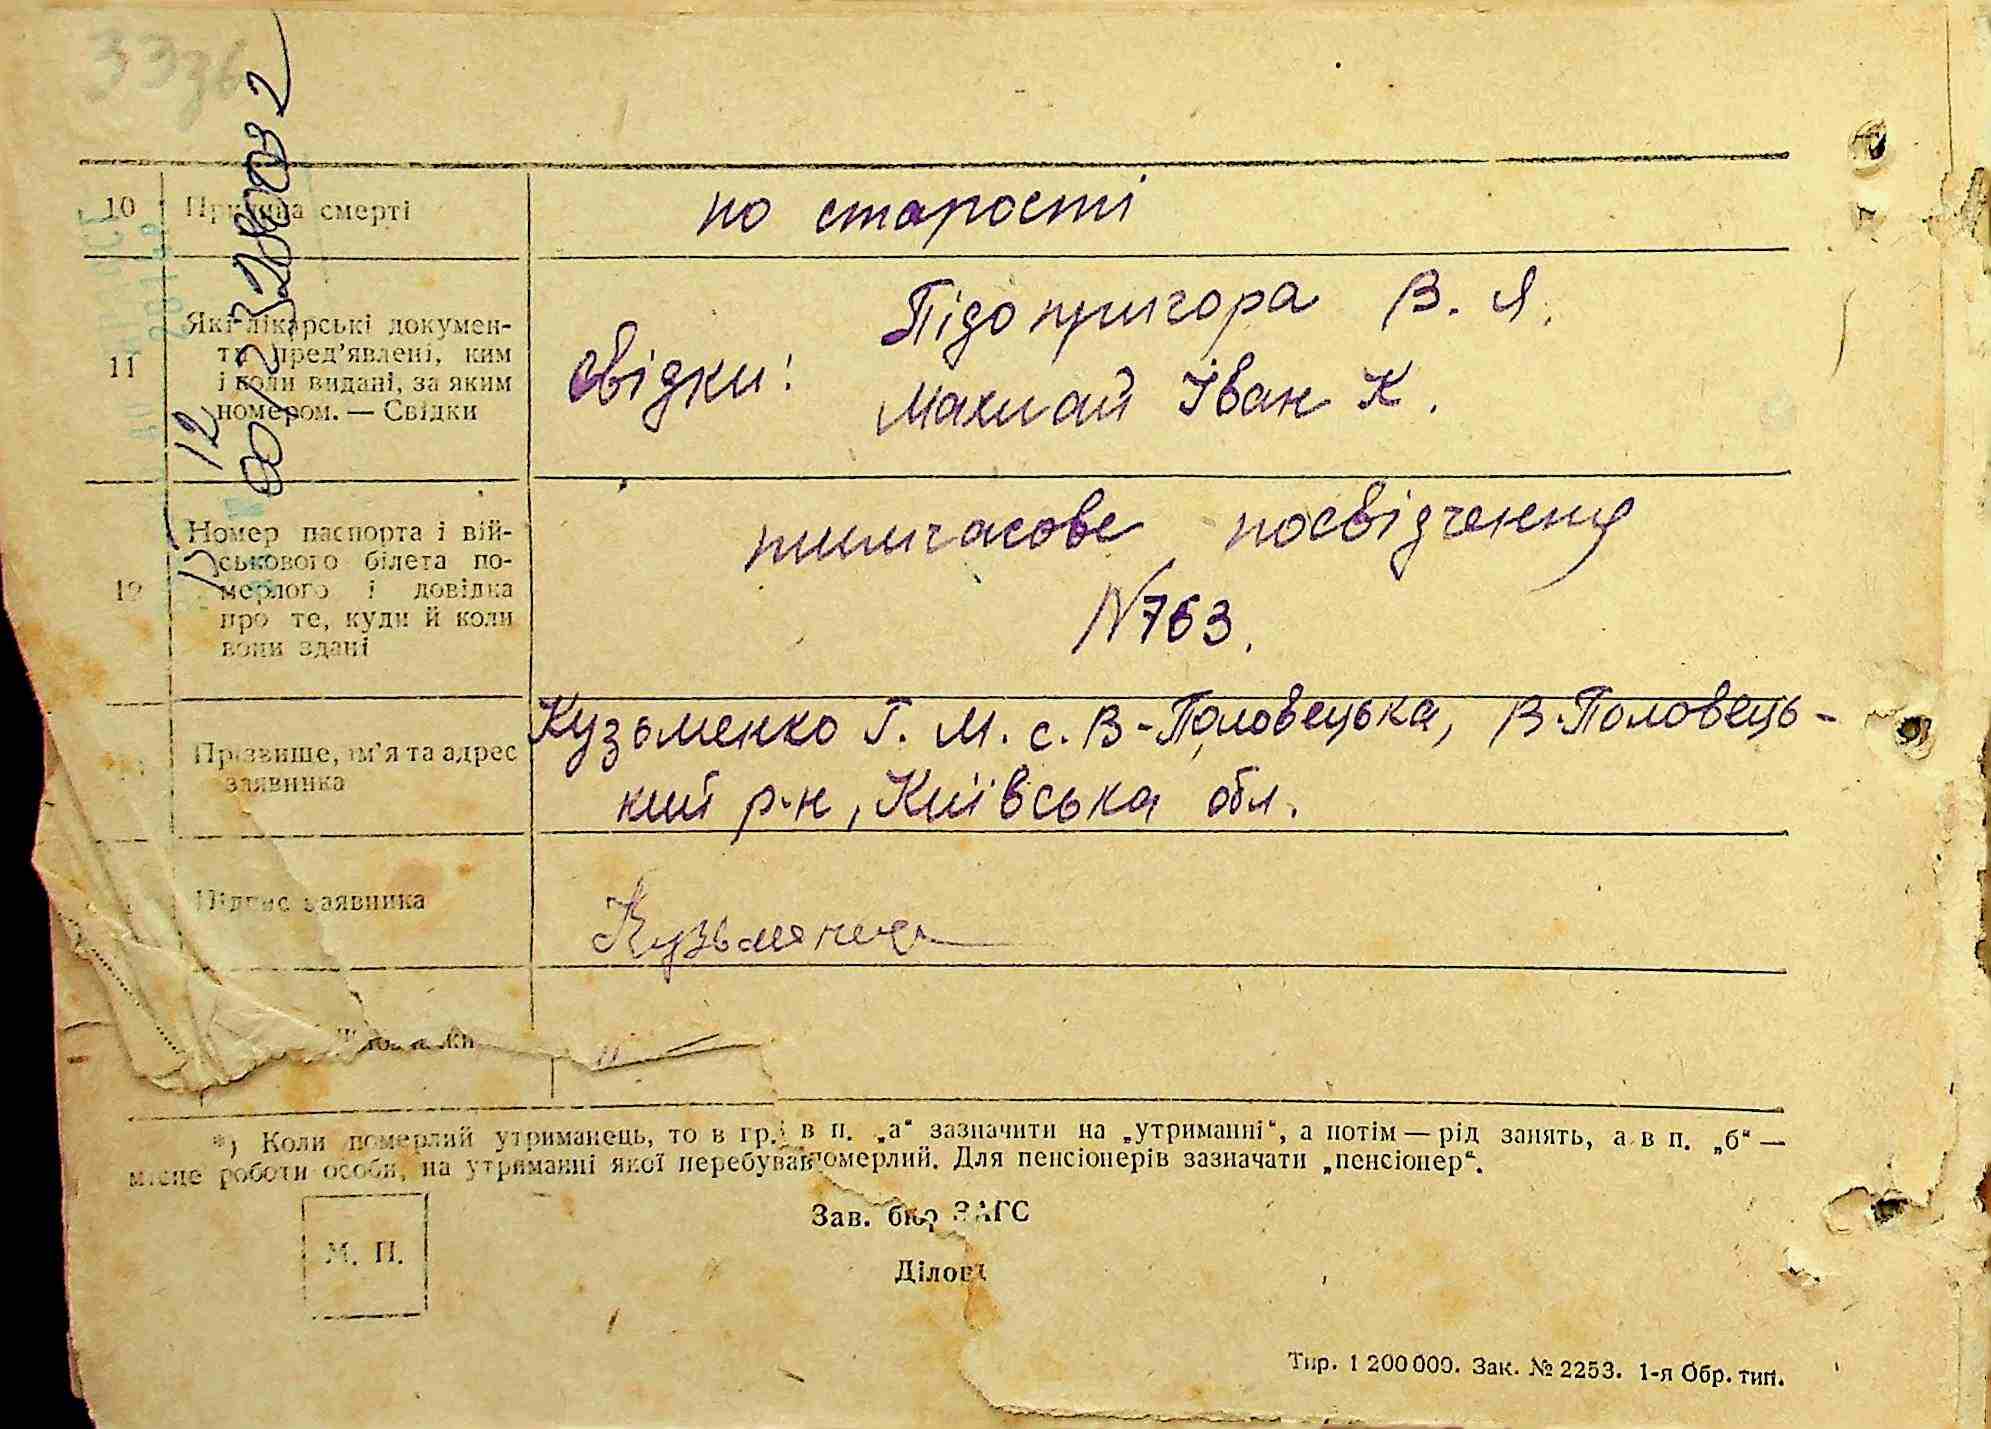 33зб
10 Причина смерті
по старості
11 Які лікарські докумен-
ти пред’явлені, ким
і коли видані, за яким
номером. — Свідки
свідки: Підопригора В. Я.
Махмай Іван К.
12
Номер паспорта і вій-
ськового білета по-
мерлого і довідка
про те, куди й коли
вони здані
тимчасове посвідчення
N 763.
Прізвище, ім’я та адрес
заявника
Кузьменко Г. М. с. В-Половецька, В-Половець-
кий р-н, Київська обл.
Підпис заявника
Кузьменко
*) Коли померлий утриманець, то в гр. в п. „а“ зазначити на „утриманні“, а потім — рід занять, а в п. „б“ —
місце роботи особи, на утриманні якої перебував померлий. Для пенсіонерів зазначати „пенсіонер“.
Зав. бюр ЗАГС
М. П.
Діловд
Тир. 1 200 000. Зак. № 2253. 1-я Обр. тип.